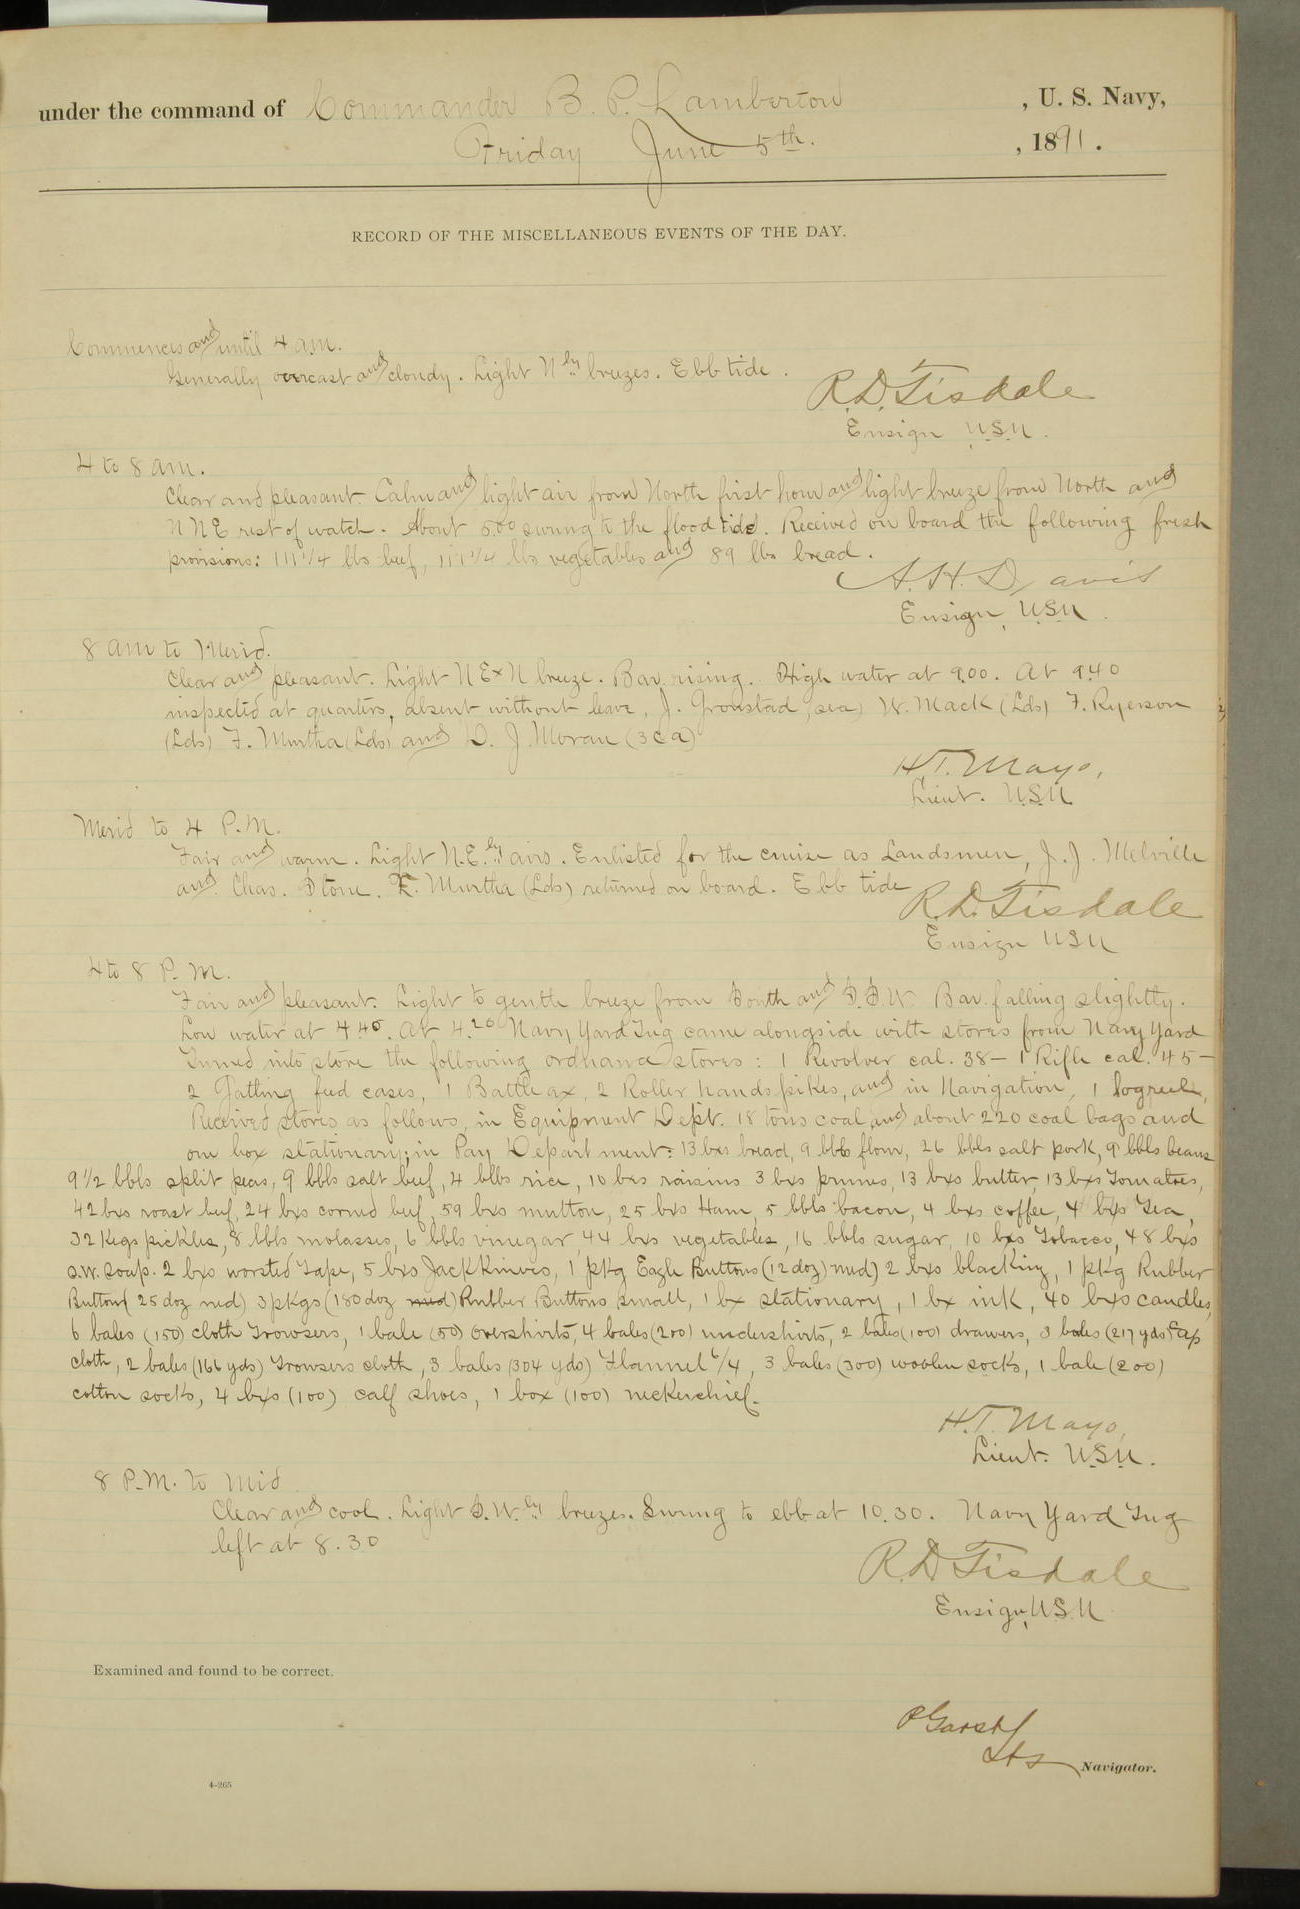 under the command of Commander B. P. Lamberton , U. S. Navy,
Friday June 5th. , 1891.
RECORD OF THE MISCELLANEOUS EVENTS OF THE DAY.
Commences and until 4 a.m.
Generally overcast and cloudy. Light Nly breezes. Ebb tide.
R.D. Tisdale
Ensign U.S.N.
4 to 8 am.
Clear and pleasant. Calm and light air from North first hour and light breeze from North and
NNE rest of watch. About 5.00 swung to the flood tide. Received on board the following fresh
provisions: 111 1/4 lbs beef, 111 1/4 lbs vegetables and 89 lbs bread.
A.H. Davis
Ensign, U.S.N.
8 am to Merid.
Clear and pleasant. Light N E x N breeze. Bar. rising. High water at 9.00. At 9.40
inspected at quarters, absent without leave, J. Gronstad (sea) W. Mack (Lds) F. Ryerson
(Lds) F. Murtha (Lds) and D. J. Moran (3ca)
H.T. Mayo,
Lieut. U.S.N.
Merid to 4 P.M.
Fair and warm. Light N.E.ly airs. Enlisted for the cruise as Landsmen, J. J. Melville
and Chas. Stone. F. Murtha (Lds) returned on board. Ebb tide
R.D. Tisdale
Ensign USN
4 to 8 P.M.
Fair and pleasant. Light to gentle breeze from South and S.S.W. Bar. falling slightly.
Low water at 4.45. At 4.20 Navy Yard Tug came alongside with stores from Navy Yard
Turned into store the following ordnance stores: 1 Revolver cal. 38— 1 Rifle cal. 45—
2 Gatling feed cases, 1 Battle ax, 2 Roller handspikes, and in Navigation, 1 log reel,
Received stores as follows, in Equipment Dept. 18 tons coal and about 220 coal bags and
one box stationary; in Pay Department: 13 bxs bread, 9 bbls flour, 26 bbls salt pork, 9 bbls beans
9 1/2 bbls split peas, 9 bbls salt beef, 4 bbls rice, 10 bxs raisins 3 bxs prunes, 13 bxs butter, 13 bxs Tomatoes,
42 bxs roast beef, 24 bxs corned beef, 59 bxs mutton, 25 bxs Ham, 5 bbls bacon, 4 bxs coffee, 4 bxs Tea,
32 Kegs pickles, 8 bbls molasses, 6 bbls vinegar, 44 bxs vegetables, 16 bbls sugar, 10 bxs Tobacco, 48 bxs
s.w. soap. 2 bxs worsted Tape, 5 bxs Jack Knives, 1 pkg Eagle Buttons (12 doz) med) 2 bxs blacking, 1 pkg Rubber
Button( 25 doz med) 3 pkgs (180 doz med) Rubber Buttons small, 1 bx stationary, 1 bx ink, 40 bxs candles,
6 bales (150) cloth Trowsers, 1 bale (50) overshirts, 4 bales (200) undershirts, 2 bales (100) drawers, 3 bales (217 yds) Cap
cloth, 2 bales (166 yds) Trowsers cloth, 3 bales (304 yds) Flannel 6/4, 3 bales (300) woolen socks, 1 bale (200)
cotton socks, 4 bxs (100) calf shoes, 1 box (100) neckerchief.
H.T. Mayo,
Lieut. U.S.N.
8 P.M. to Mid
Clear and cool. Light S.W.ly breezes. Swung to ebb at 10.30. Navy Yard Tug
left at 8.30
R.D. Tisdale
Ensign, U.S.N.
Examined and found to be correct.
P Garst
Navigator.
4-265